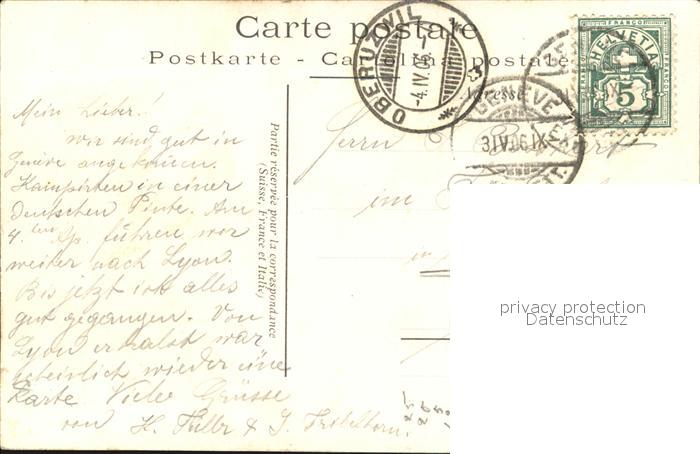 Carte postale
Postkarte - Cartolina postale
OBERUZWIL
-4.IV.06.-
GENÈVE
3.IV.06.IX-
HELVETIA
FRANCO
5
Adresse
Partie réservée pour la correspondance
(Suisse, France et Italie)
Mein Lieber!
Wir sind gut in
Genève angekommen.
in einer
deutschen Pinte. Am
4. ten Ap. führen wir
weiter nach Lyon.
Bis jetzt ist alles
gut gegangen. Von
Lyon erhalst
wieder eine
Karte Viele Grüsse
von H. & J.
Herrn
im
in
privacy protection
Datenschutz